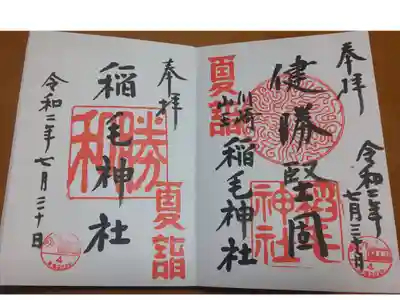 奉拝
健勝堅固
夏詣
川崎
山王
稲毛神社
令和二年
七月三十日
稲毛
神社
奉拝
稲毛神社
勝
和
夏詣
令和二年七月三十日